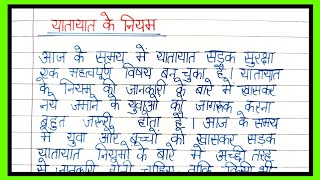 यातायात के नियम
आज के समय में यातायात सड़क सुरक्षा
एक महत्वपूर्ण विषय बन चुका है। यातायात
के नियम की जानकारी के बारे में खासकर
नये जमाने के युवाओं को जागरूक करना
बहुत जरूरी होता है। आज के समय
में युवा और बच्चों को खासकर सड़क
यातायात नियमों के बारे में अच्छी तरह
से जानकारी होनी चाहिए